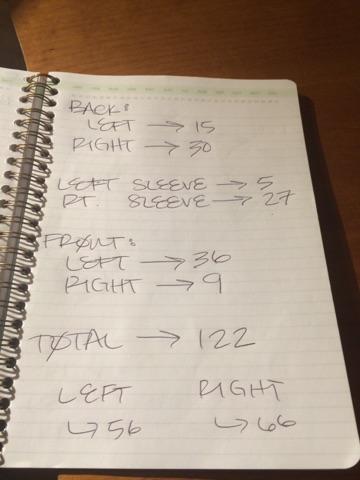 BACK:
LEFT → 15
RIGHT → 30
LEFT SLEEVE → 5
RT. SLEEVE → 27
FRONT:
LEFT → 36
RIGHT → 9
TOTAL → 122
LEFT RIGHT
↳ 56 ↳ 66